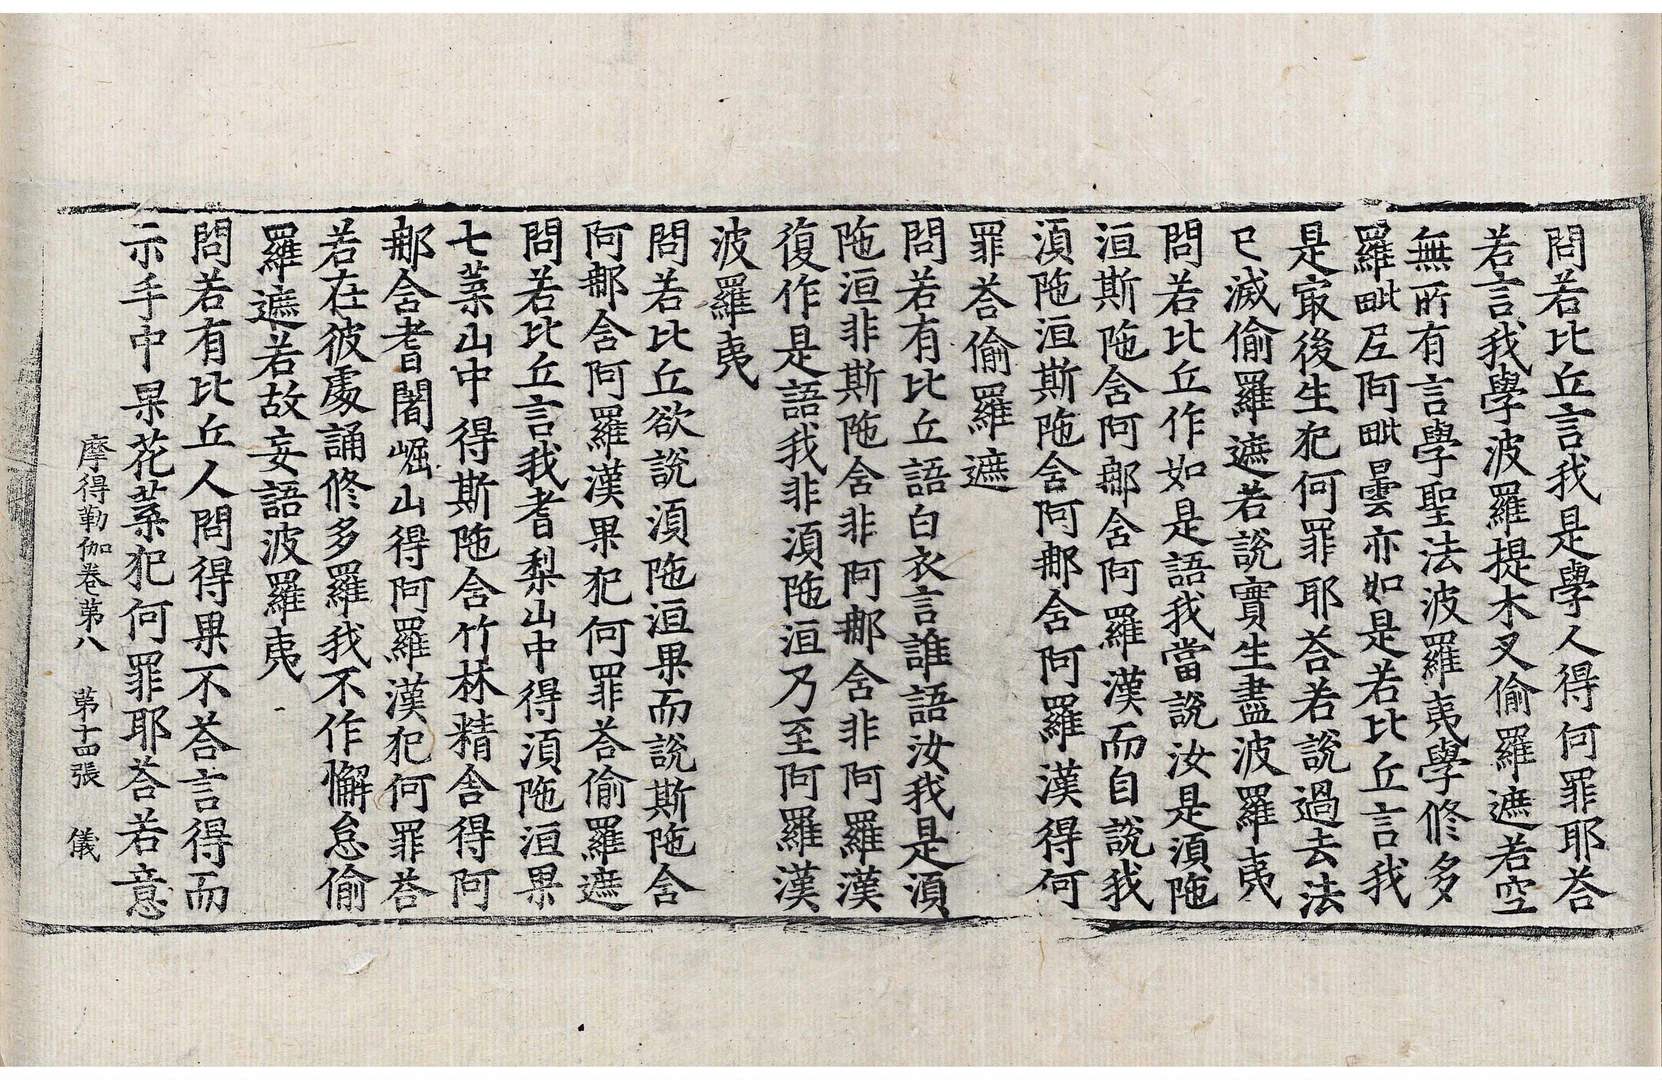 問若比丘言我是學人得何罪耶荅
若言我學波羅提木叉偷羅遮若空
無所有言學聖法波羅夷學修多
羅毗尼阿毗曇亦如是若比丘言我
是㝡後生犯何罪耶荅若說過去法
已滅偷羅遮若說實生盡波羅夷
問若比丘作如是語我當說汝是湏陁
洹斯陁含阿那含阿羅漢而自說我
湏陁洹斯陁含阿那含阿羅漢得何
罪荅偷羅遮
問若有比丘語白衣言誰語汝我是湏
陁洹非斯陁含非阿那含非阿羅漢
復作是語我非湏陁洹乃至阿羅漢
波羅夷
問若比丘欲說湏陁洹果而說斯陁含
阿那含阿羅漢果犯何罪荅偷羅遮
問若比丘言我耆梨山中得湏陁洹果
七葉山中得斯陁含竹林精舍得阿
那含耆闍崛山得阿羅漢犯何罪荅
若在彼處誦修多羅我不作懈怠偷
羅遮若故妄語波羅夷
問若有比丘人問得果不荅言得而
示手中果花葉犯何罪耶荅若意
摩得勒伽卷第八 第十四張 儀